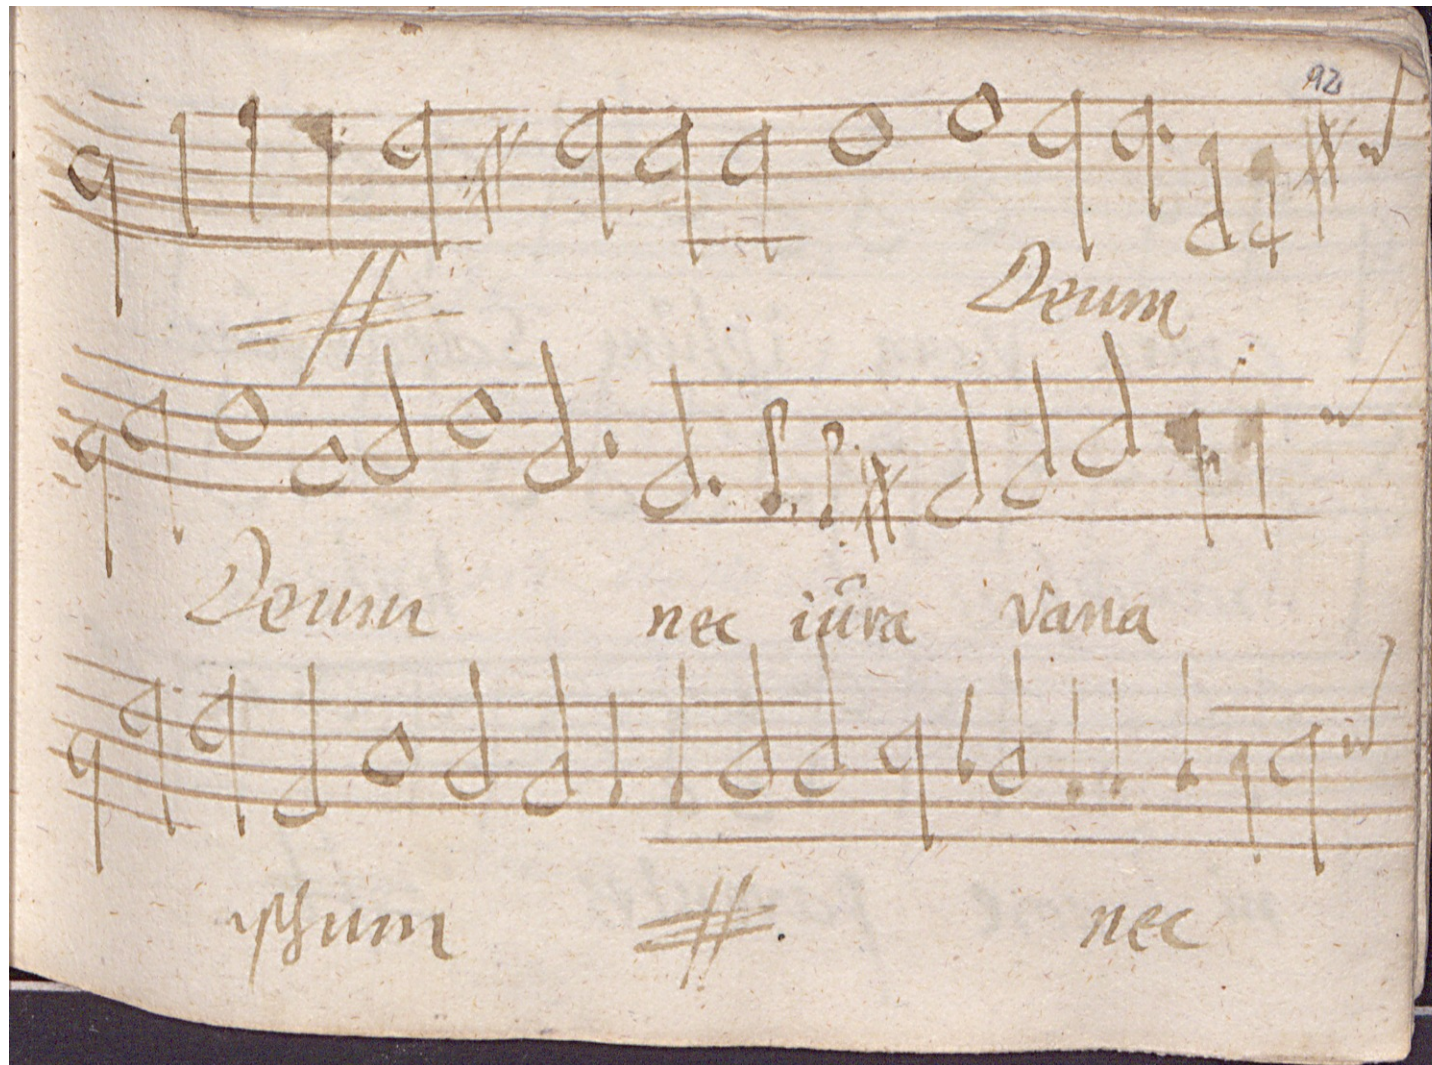 92
Deum
Deum nec iũra vana
ipsum nec